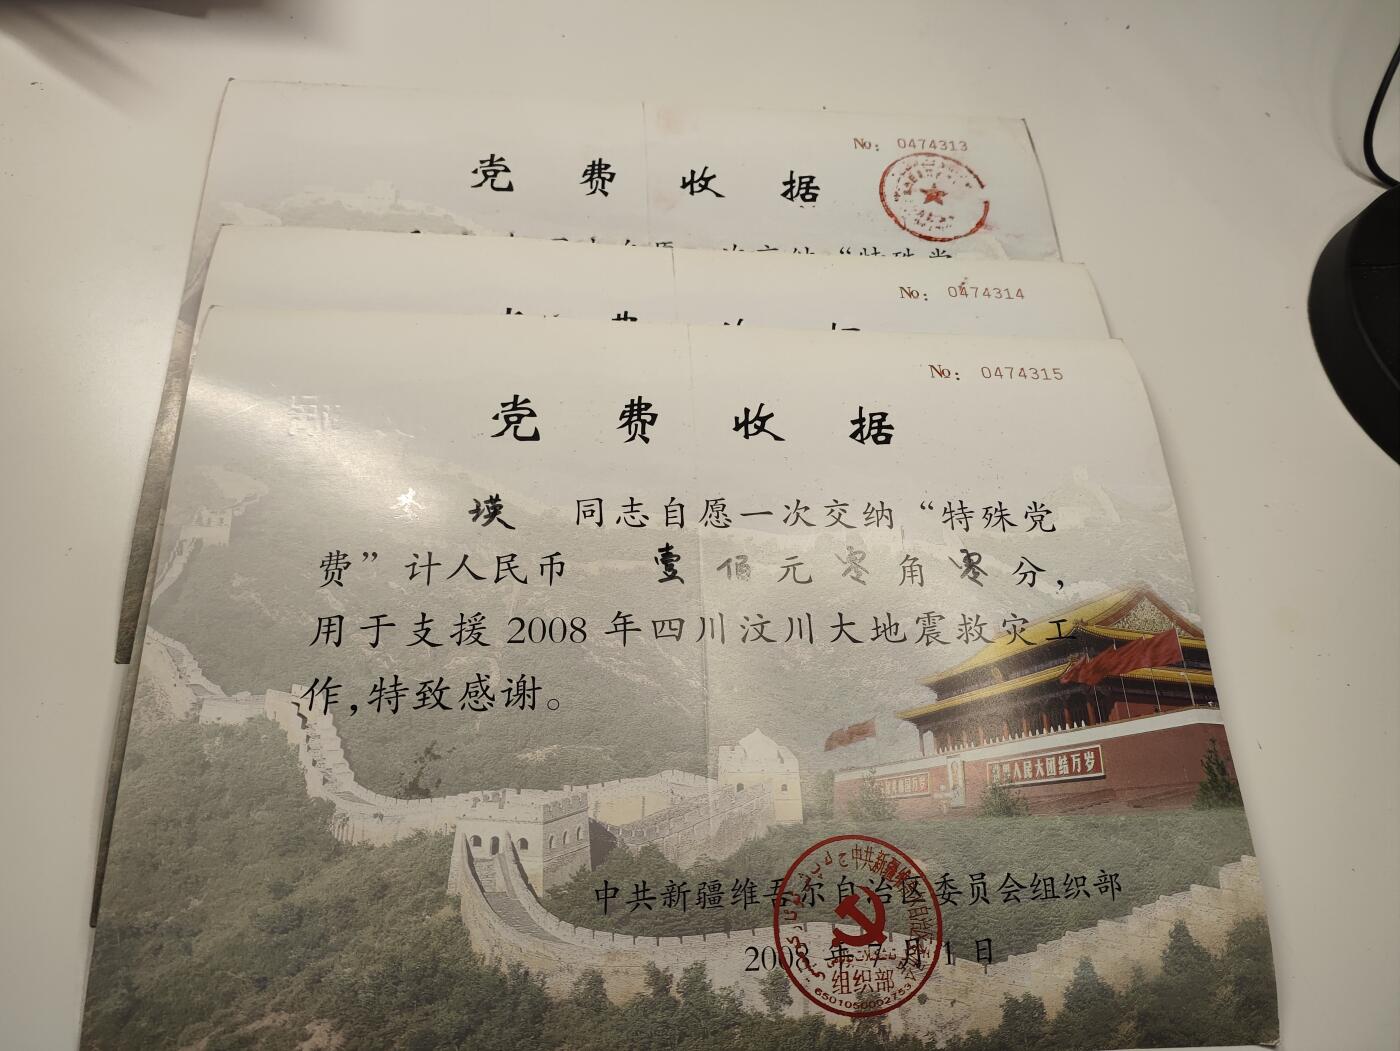 No: 0474313
党费收据
No: 0474314
No: 0474315
党费收据
瑛 同志自愿一次交纳“特殊党
费”计人民币 壹佰元零角零分，
用于支援2008年四川汶川大地震救灾工
作，特致感谢。
人民大团结万岁
中共新疆维吾尔自治区委员会组织部
2008年7月1日
组织部
6501050002753